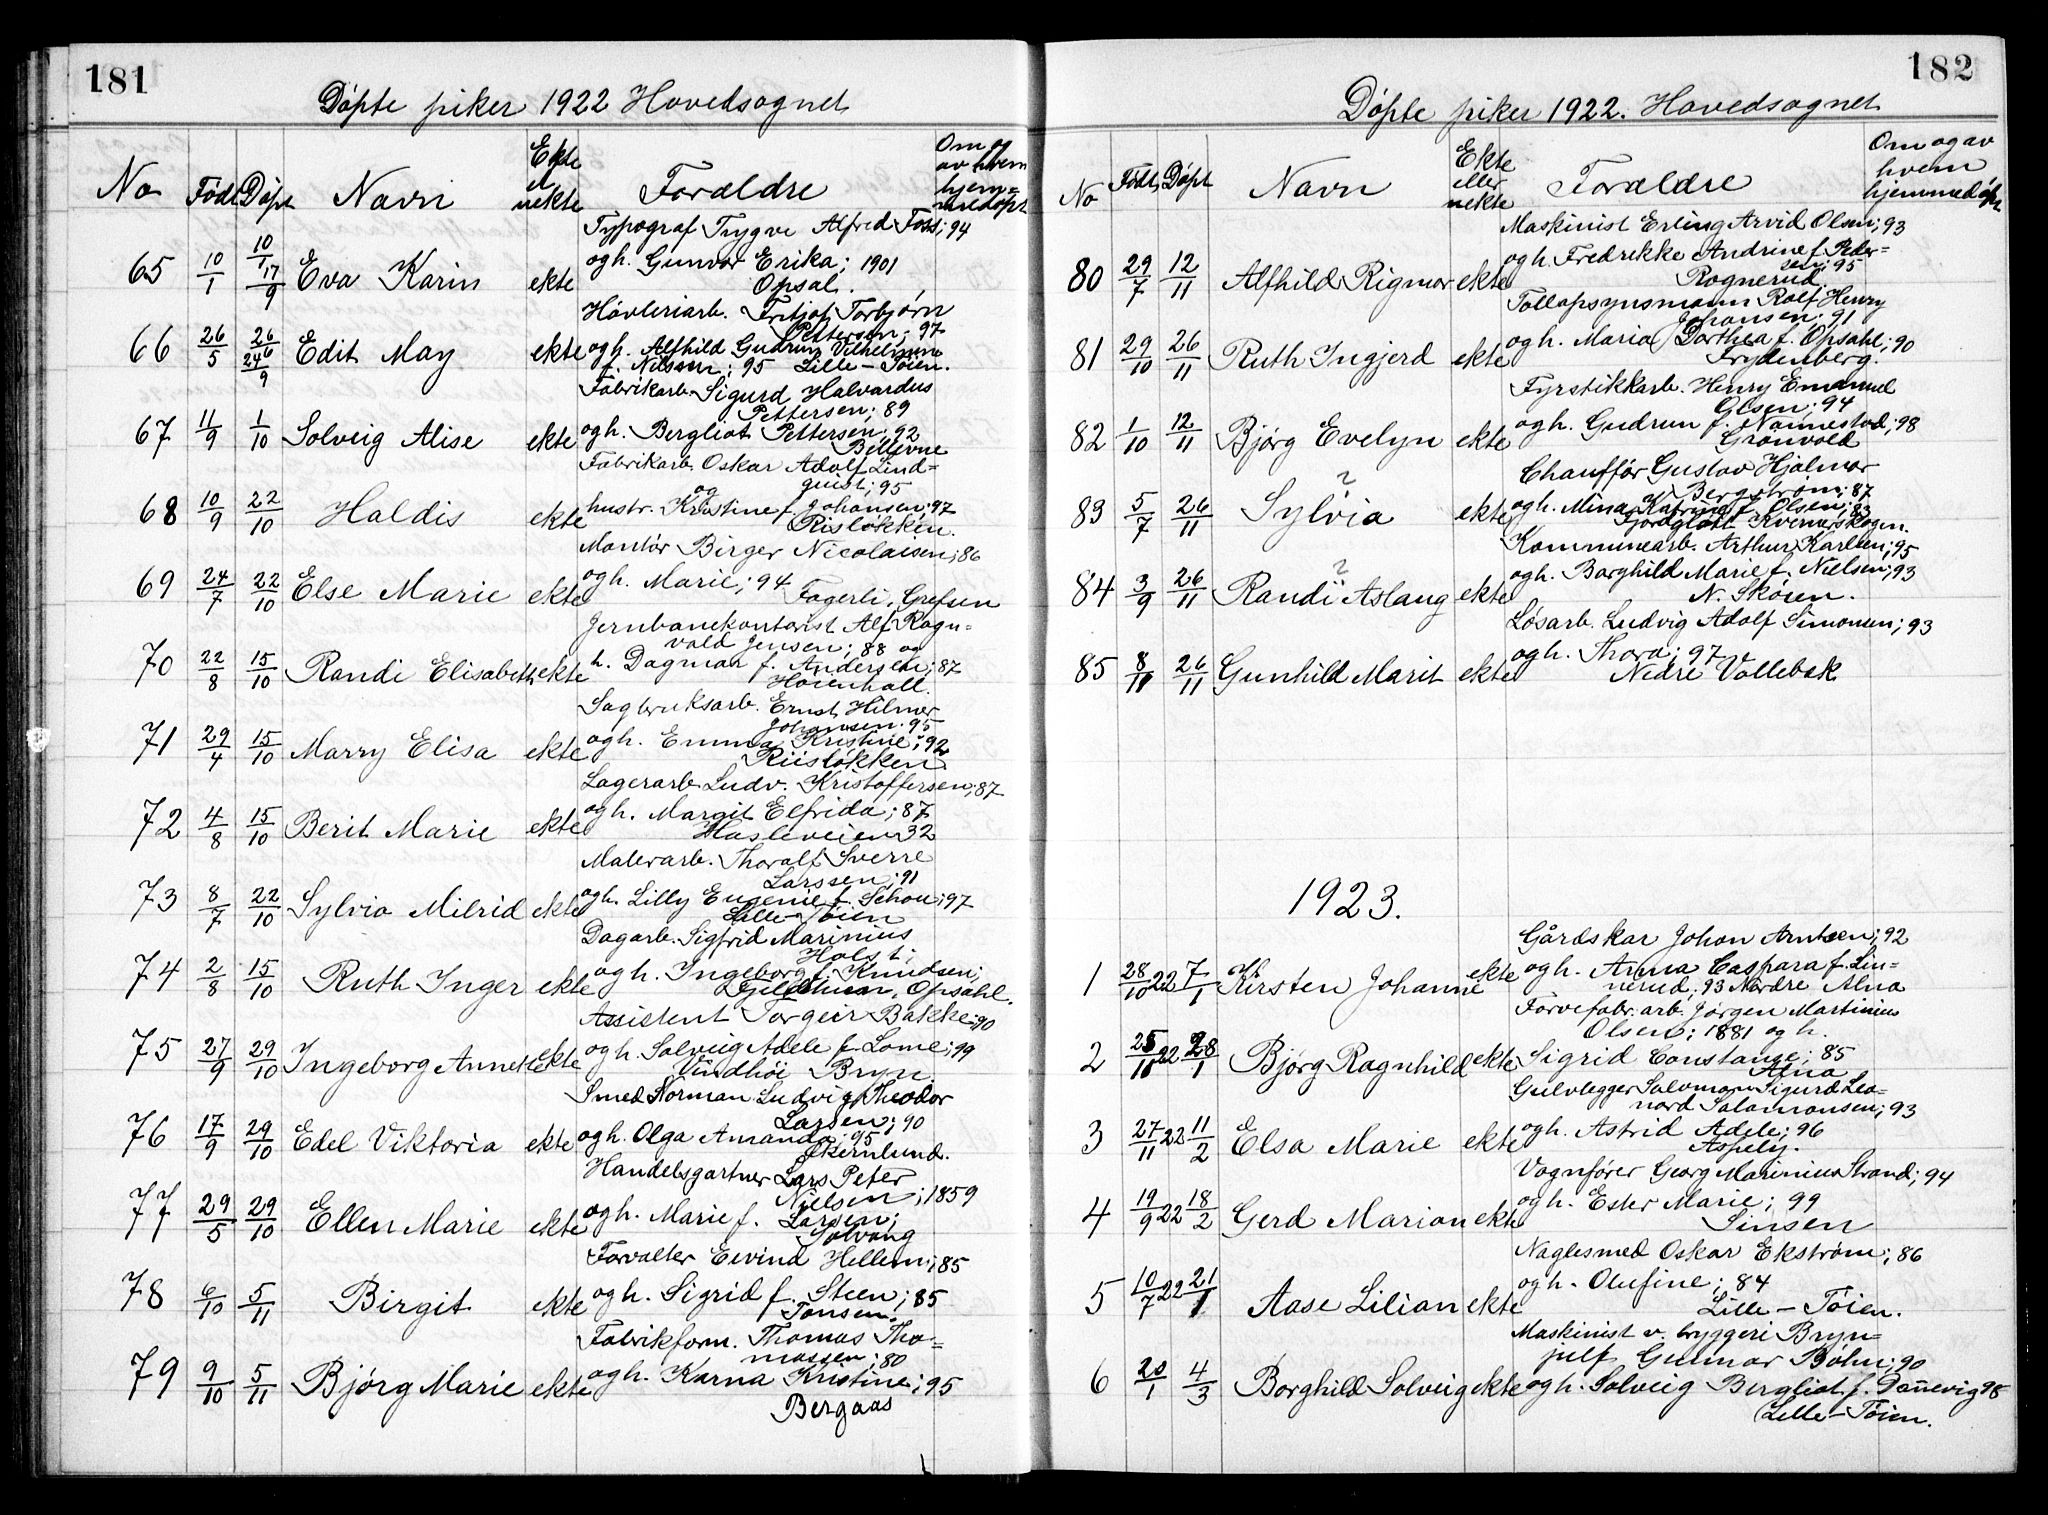 181
Døpte piker 1922 Hovedsognet
No Født Døpt Navn Ekte el uekte Forældre Om og av hvem hjem=medøpt
Typograf Trygve Alfred Foss; 94
65 10/1 10/1 17/9 Eva Karin ekte og h. Gunvor Erika; 1901
Opsal.
Høvleriarb. Fritjof Torbjørn
Pettersen; 97
66 26/5 26/6 24/9 Edit May ekte og h. Alfhild Gudrun Vilhelmine
f. Nilssen; 95 Lille-Tøien.
Fabrikarb. Sigurd Halvardus
Pettersen; 89
67 11/9 1/10 Solveig Alise ekte og h. Bergliot Pettersen; 92
Fabrikarb. Oskar Adolf Lind=
quist; 95
68 10/9 22/10 Haldis ekte og hustr. Kristine f. Johansen; 97
Risløkken.
Montør Birger Nicolaisen; 86
69 24/7 22/10 Else Marie ekte og h. Marie; 94
Fagerli, Grefsen
Jernbanekontorist Alf Ragn=
vald Jensen; 88 og
70 22/8 15/10 Randi Elisabeth ekte h. Dagmar f. Andersen; 87
Sagbruksarb. Ernst Hilmer
Johansen. 95
71 29/4 15/10 Marry Elisa ekte og h. Emma Kristine; 92
Riisløkken
Lagerarb. Ludv. Kristoffersen; 87
72 4/8 15/10 Berit Marie ekte og h. Margit Elfrida; 87
Hasleveien 32
Malerarb. Thoralf Sverre
Larssen; 91
73 8/7 22/10 Sylvia Milrid ekte og h. Lilly Eugenie f. Schou; 97
Lille-Tøien
Dagarb. Sigfrid Marinius
Holst;
74 2/8 15/10 Ruth Inger ekte og h. Ingeborg f. Knudsen;
Opsahl.
Assistent Torgeir Bakke; 90
75 27/9 29/10 Ingeborg ekte og h. Solveig Adele f. Lome; 99
Vindhøi Bryn
Smed Norman Ludvig Theodor
Larsen; 90
76 17/9 29/10 Edel Viktoria ekte og h. Olga Amanda; 95
Handelsgartner Lars Peter
Nielsen; 1859
77 29/5 29/10 Ellen Marie ekte og h. Marie f. Larsen;
Solvang
Forvalter Eivind Hellem; 85
78 6/10 5/11 Birgit ekte og h. Sigrid f. Steen; 85
Tonsen.
Fabrikform. Thomas Tho-
massen; 80
79 9/10 5/11 Bjørg Marie ekte og h. Karna Kristine; 95
Bergaas
182
Døpte piker 1922. Hovedsognet
No Født Døpt Navn Ekte eller uekte Forældre Om og av hvem hjemmedøpt
Maskinist Erling Arvid Olsen; 93
80 29/7 12/11 Alfhild Rigmor ekte og h. Fredrekke Andrine f. Peder=
sen; 95
Rognerud
Tollopsynsmann Rolf Henry
Johansen; 91
81 29/10 26/11 Ruth Ingjerd ekte og h. Maria Dorthea f. Opsahl; 90
Frydenberg.
Fyrstikkarb. Henry Emanuel
Olsen; 94
82 1/10 12/11 Bjørg Evelyn ekte og h. Gudrun f. Nannestad; 98
Grønvold
Chauffør Gustav Hjalmar
Bergstrøm; 87
83 5/7 26/11 ? Sylvia ekte og h. Mina Katrine f. Olsen; 83
Fjordgløtt Kvernerskogen.
Kommunearb. Arthur Karlsen; 95
84 3/9 26/11 ? Randi Aslaug ekte og h. Borghild Marie f. Nielsen; 93
N. Skøien.
Løsarb. Ludvig Adolf Simonsen; 93
85 8/11 26/11 Gunhild Marit ekte og h. Thora; 97
Nedre Vollebæk
1923.
Gårdskar Johan Arntsen; 92
1 28/10 22 7/1 Kirsten Johanne ekte og h. Anna Caspara f. Lin=
nerud; 93 Nordre Alna
Farvefabr. arb. Jørgen Martinius
Olsen; 1881 og h.
2 25/11 22 28/1 Bjørg Ragnhild ekte Sigrid Constance; 85
Alna
Gulvlegger Salomon Sigurd Leo=
nard Salamonsen; 93
3 27/11 22 11/2 Elsa Marie ekte og h. Astrid Adele; 96
Aspely.
Vognfører Georg Marinius Strand; 94
4 19/9 22 18/2 Gerd Marion ekte og h. Ester Marie; 99
Sinsen
Naglesmed Oskar Ekstrøm; 86
5 10/7 22 21/1 Aase Lilian ekte og h. Olufine; 84
Lille-Tøien.
Maskinist v. bryggeri Bryn=
julf Gunnar Bøhn; 90
6 20/1 4/3 Borghild Solveig ekte og h. Solveig Bergliot f. Dannevig 98
Lille-Tøien.